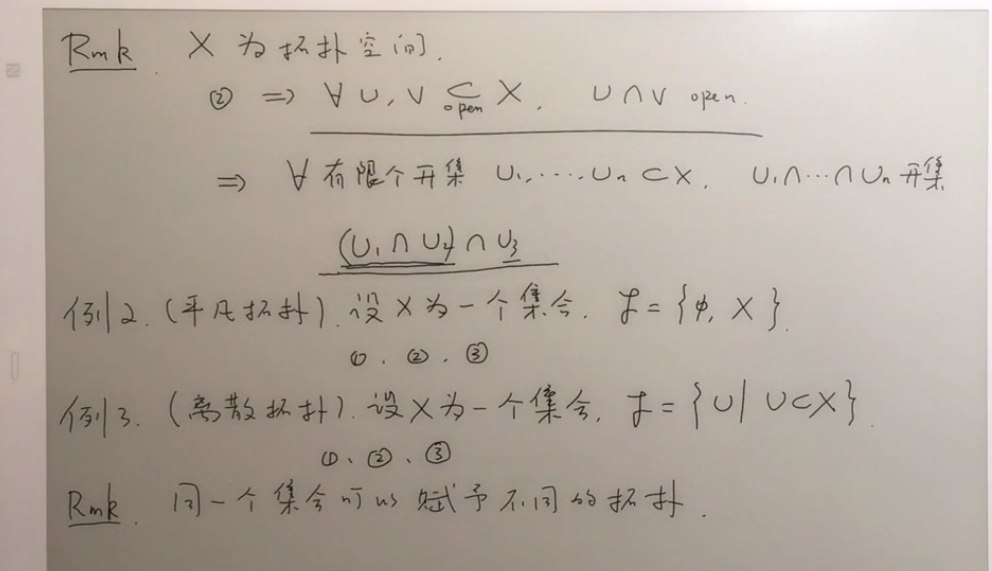 Rmk. X 为拓扑空间.
② ⇒ ∀ U, V ⊂ X. U∩V open.
open
⇒ ∀ 有限个开集 U₁,....,Uₙ ⊂ X. U₁∩…∩Uₙ 开集
(U₁ ∩ U₂) ∩ U₃
例2. (平凡拓扑). 设 X 为一个集合. 𝒯 = {φ, X}.
①. ②. ③
例3. (离散拓扑). 设 X 为一个集合. 𝒯 = {U | U⊂X}.
①、②、③
Rmk. 同一个集合可以赋予不同的拓扑.